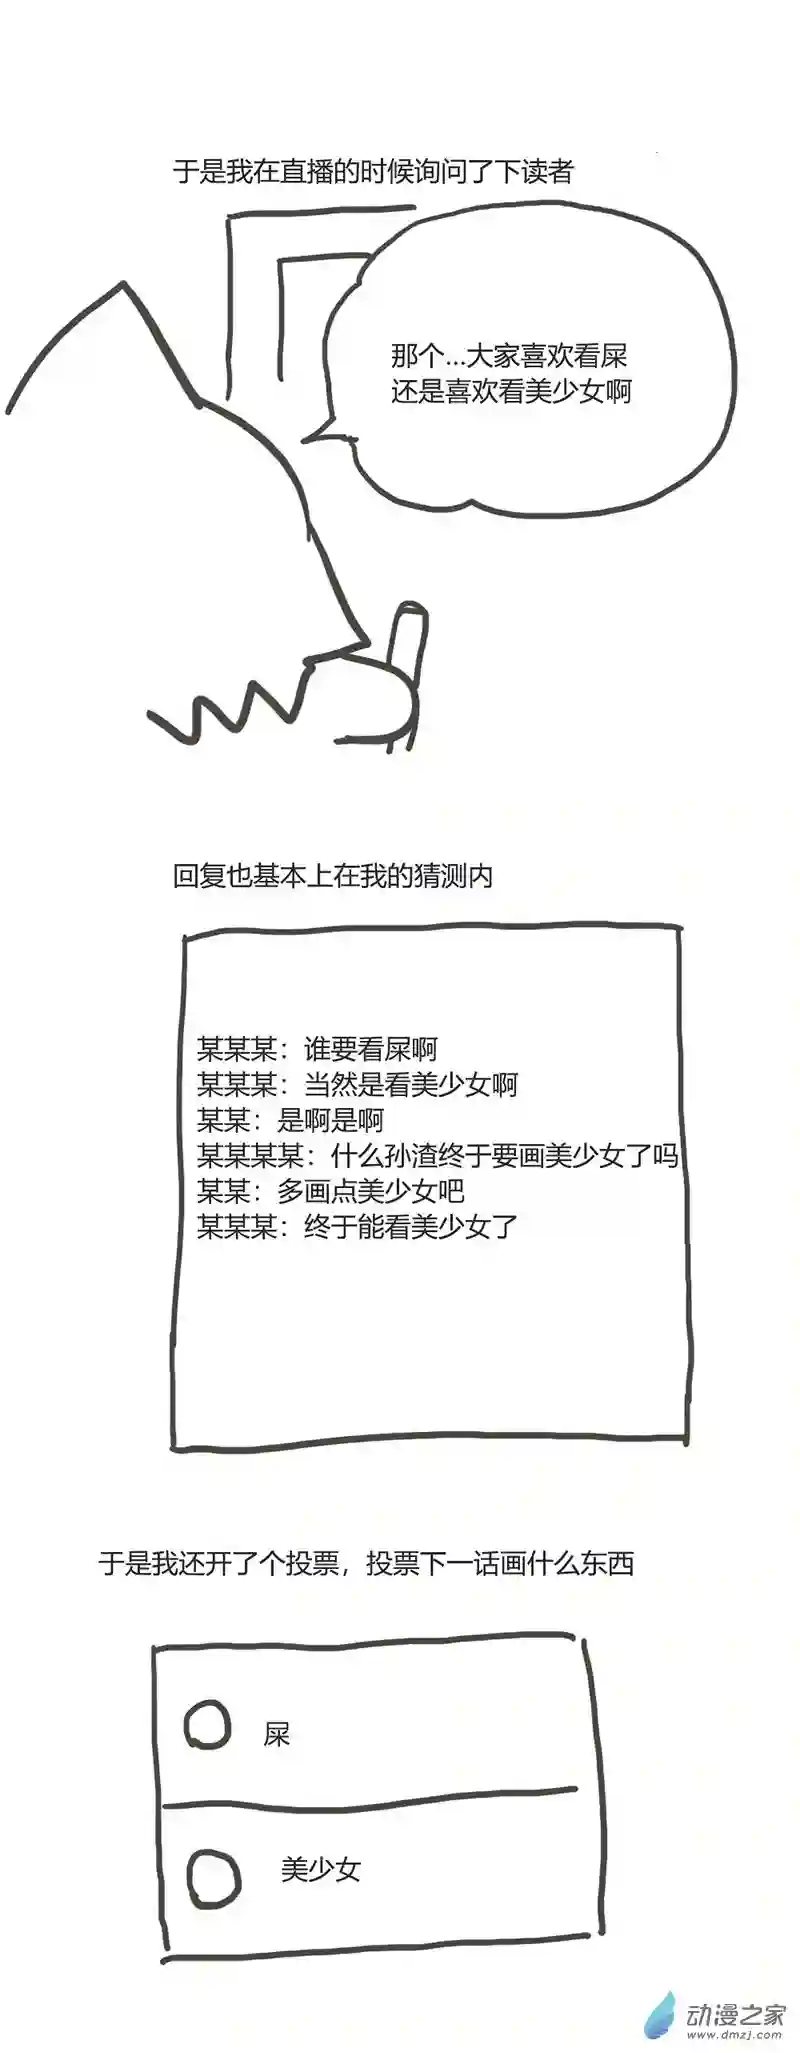 于是我在直播的时候询问了下读者
那个...大家喜欢看屎
还是喜欢看美少女啊
回复也基本上在我的猜测内
某某某：谁要看屎啊
某某某：当然是看美少女啊
某某：是啊是啊
某某某某：什么孙渣终于要画美少女了吗
某某：多画点美少女吧
某某某：终于能看美少女了
于是我还开了个投票，投票下一话画什么东西
屎
美少女
动漫之家
www.dmzj.com